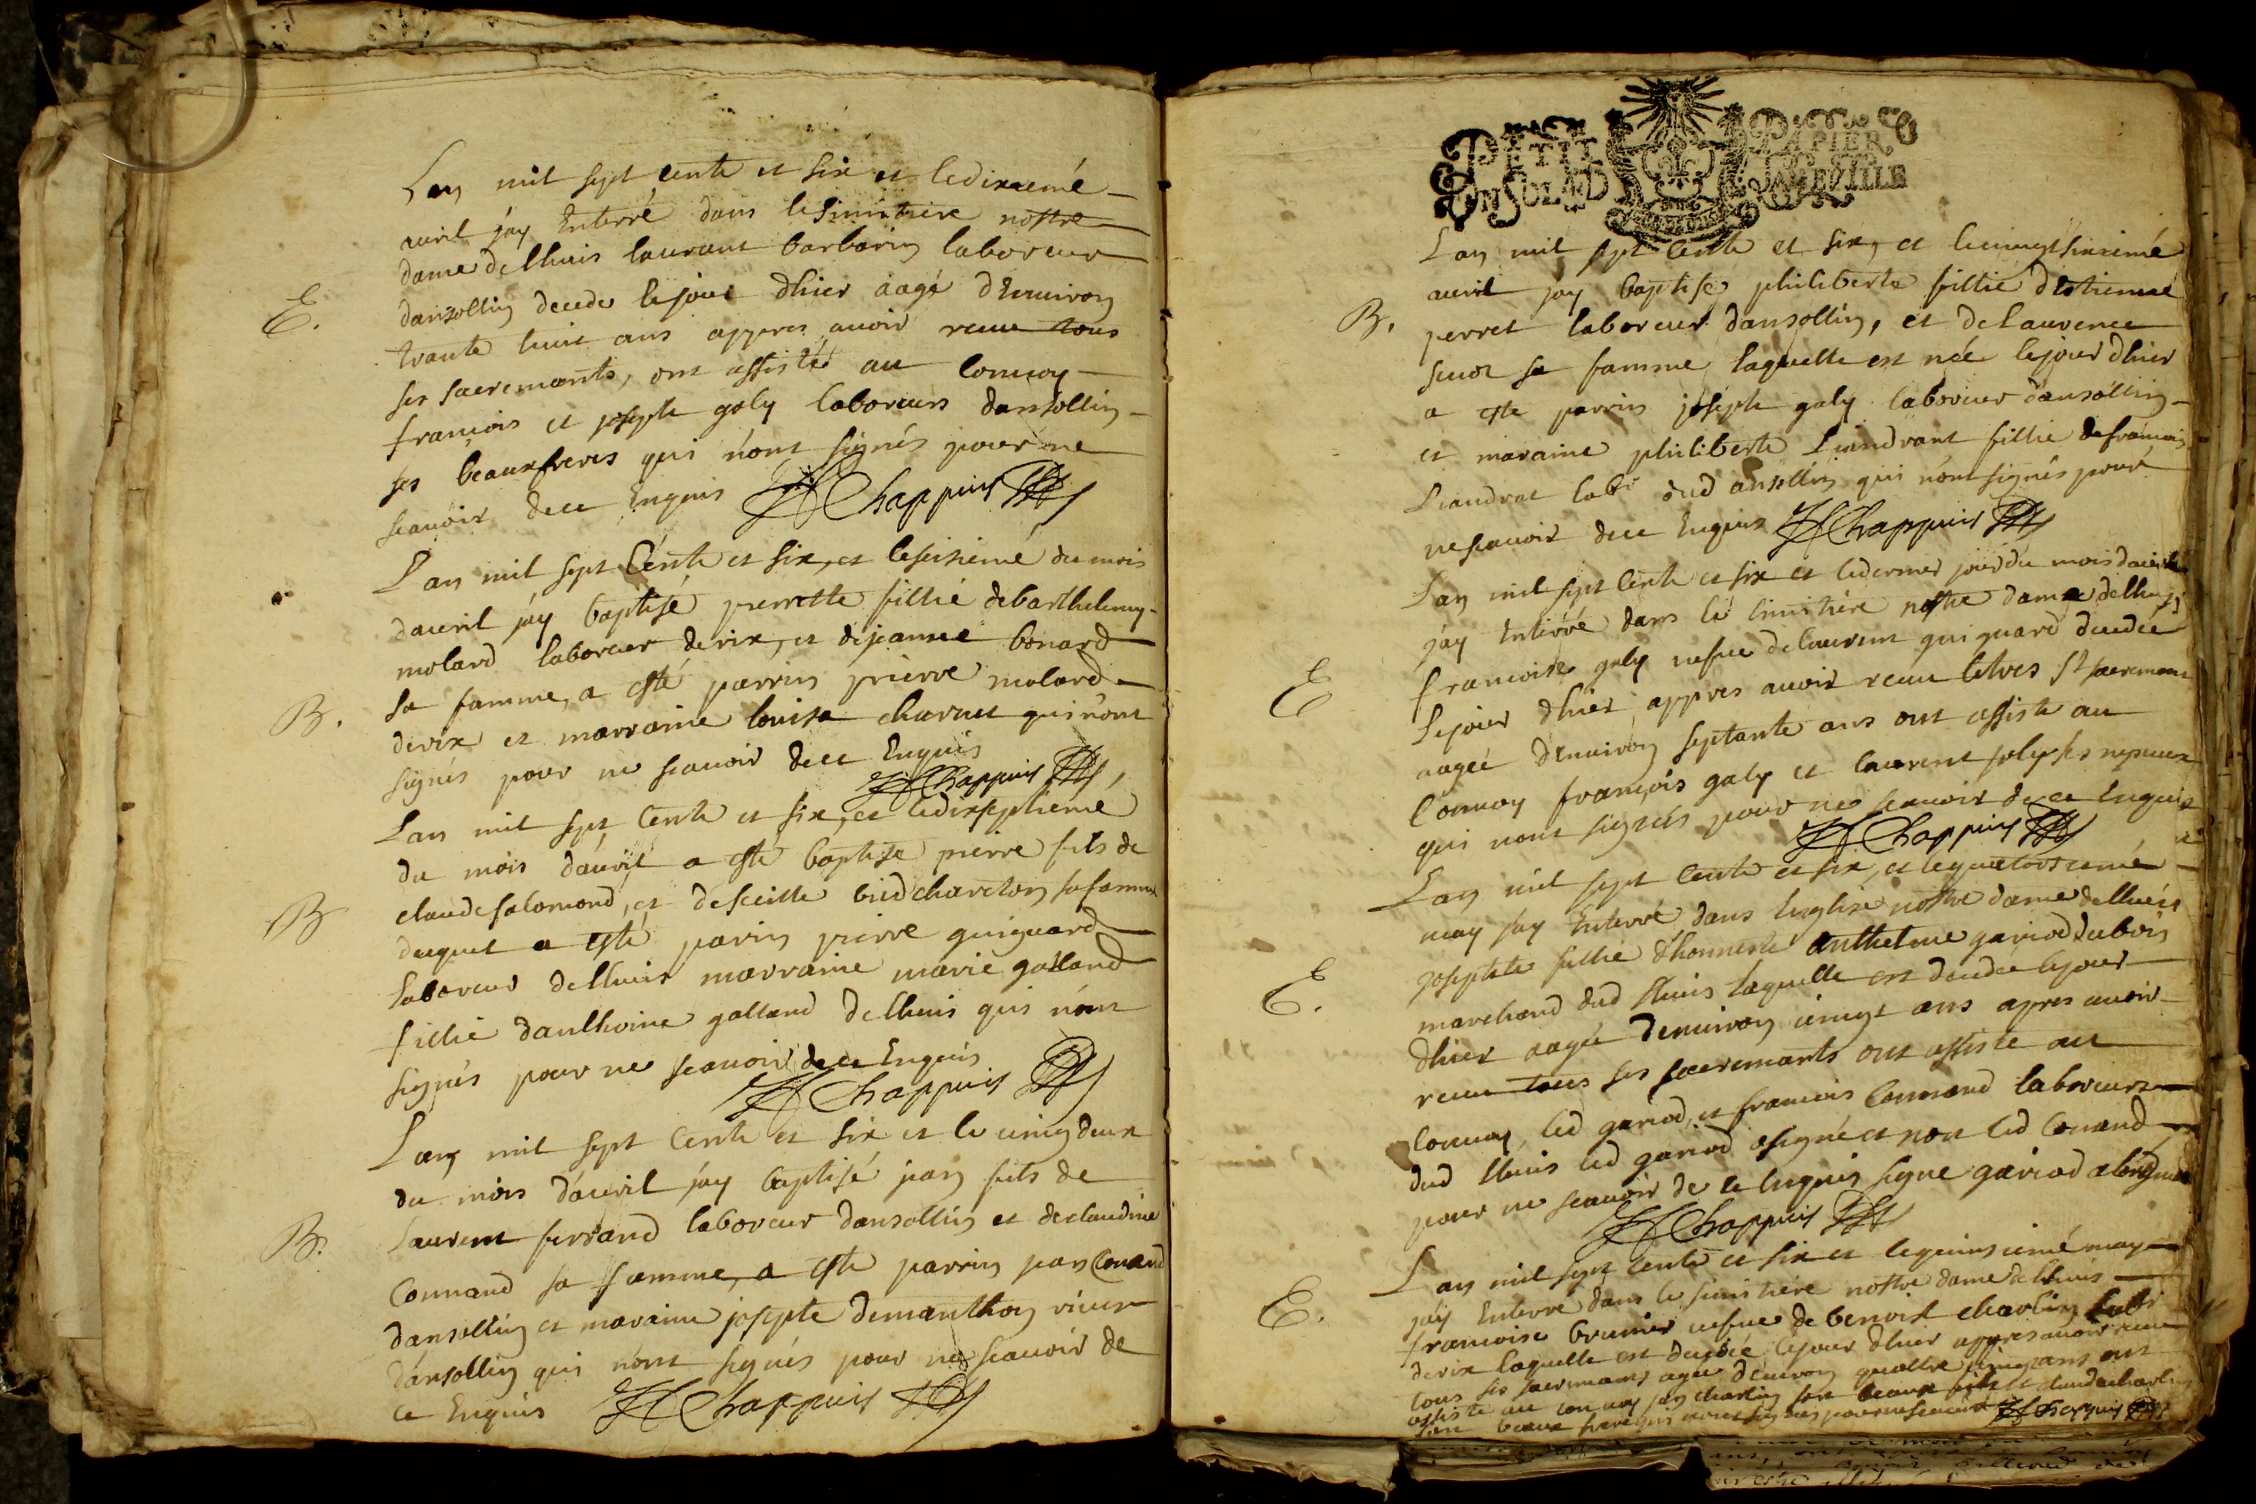 Lan mil sept cente et six et le dixiemé
auril jáy Enterré dans le simitiere nostre
dame delhuis laurant barbarin laboreur
E.
dansollin decede le jour dhier aagé dEnuiron
trante huit ans appres auoir receu tous
ses sacremants, ont assisté au conuoy
francois et joseph galy laboreurs dansollin
ses beaux freres qui n'ont signés pour ne
scauoir de ce Enquis Chappuis
Lan mil sept Cente et six, et le seisiemé du mois
dauril jáy baptisé pierrette fillié de barthelemy
molard laboreur de rix, et de jeanne bonard
B.
sa famme, a esté parrin pierre molard
de rix et marraine louise charuet qui n'ont
signés pour ne scauoir de ce Enquis
Chappuis
Lan mil sept Cente et six, et le dixseptiemé
du mois dáuril a esté baptisé pierre fils de
B
claude salomond, et de seille bridcharcton sa famme
duquel a esté parin pierre guiguard
laboreur delhuis marraine marie galland
fillié danthoine galland delhuis qui n'ont
signés pour ne scauoir de ce Enquis
Chappuis
Lan mil sept Cente et six et le uingdeux
du mois dáuril jáy baptisé jean fils de
B.
Laurent ferrand laboreur dansollin et de claudine
Connand sa famme, a esté parrin jean Conand
dansollin et maraine josepte demanthon veuue
dánsollin qui n'ont signés pour ne scauoir de
ce Enquis Chappuis
PETIT PAPIER
UN SOL LE D
Lan mil sept Cente et six, et le uingtsixiemé
auril jay baptisé philiberte fillié dEstienne
B.
perret laboreur dansollin, et de Laurence
sa famme laquelle est née le jour dhier
a este parrin joseph galy laboreur dánsollin
et maraine philiberte Liandrant fillié de francois
Liandrat labr dud ansollin qui n'ont signés pour
ne scauoir de ce Enquis Chappuis
Lan mil sept Cente et six et le dernier jour du mois dauril
jáy Enterré dans le simitiére nostre dame delhuis
E
francoise galy uefue de laurent guiguard decedée
le jour dhier appres auoir receu sacremans
aagée dEnuiron septante ans ont assiste au
Conuoy françois galy et laurent joly ses nepueux
qui nont signés pour ne scauoir de ce Enquis
Chappuis
Lan mil sept Cente et six, et le quatorsiemé
may jay Enterré dans leglise nostre dame delhuis
E.
josepte fillié dhonneste anthelme gariod dubois
marchand dud lhuis laquelle est decedée le jour
dhier aagée denuiron uingt ans apres auoir
receu tous ses sacremants ont assiste au
Conuoy, led gariod, et francois Connand laboreurs
dud lhuis led gariod a signé et non led Conand
pour ne scauoir de ce Enquis signe gariod
Chappuis
Lan mil sept Cente et six et le quinsiemé may
E.
jáy Enterré dans le simitiére nostre dame delhuis
francoise brunier uefue de benoist charlin labr
de rix laquelle est decedée le jour dhier appres auoir receu
tous ses sacremans agée denuiron quattre uingt ans ont
assiste au conuoy jean charlin son beaux fils et claude charlin
son beaux frere qui n'ont signés pour ne scauoir Chappuis